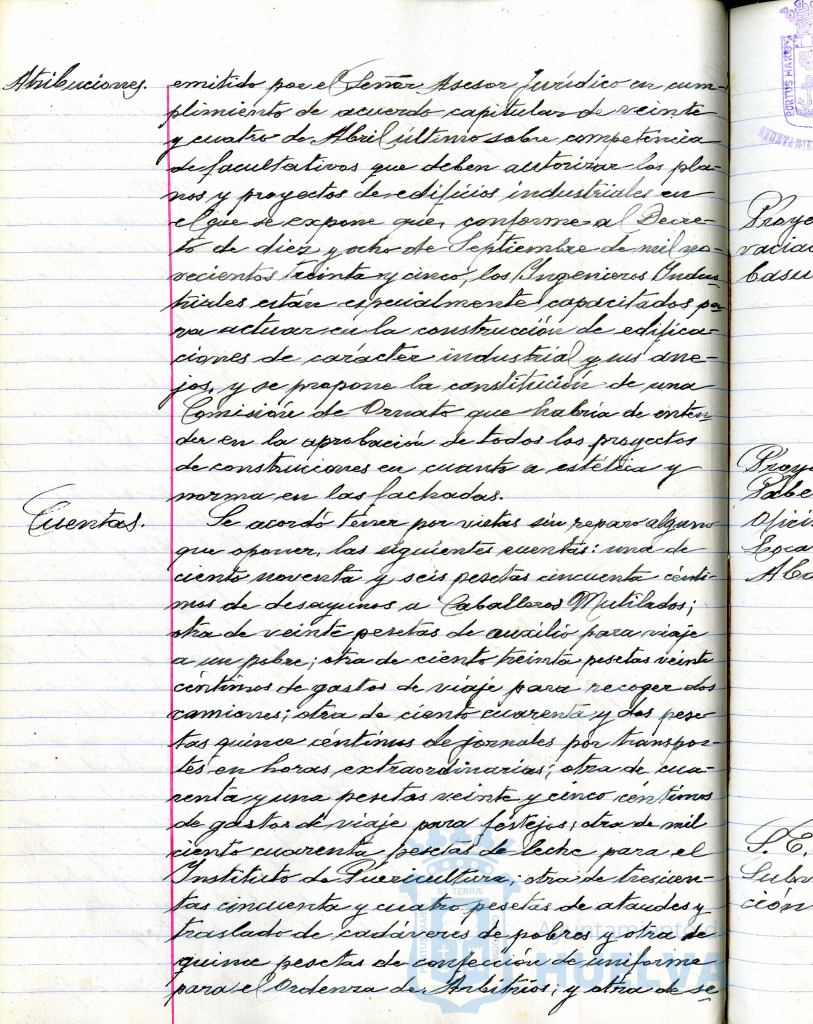 Atribuciones.
emitido por el Señor Asesor Jurídico en cum-
plimiento de acuerdo capitular de veinte
y cuatro de Abril último sobre competencia
de facultativos que deben autorizar los pla-
nos y proyectos de edificios industriales en
el que se expone que, conforme al Decre-
to de diez y ocho de Septiembre de mil no-
vecientos treinta y cinco, los Ingenieros Indus-
triales están especialmente capacitados pa-
ra actuar en la construcción de edifica-
ciones de carácter industrial y sus ane-
jos, y se propone la constitución de una
Comisión de Ornato que habría de enten-
der en la aprobación de todos los proyectos
de construciones en cuanto a estética y
norma en las fachadas.
Cuentas.
Se acordó tener por vistas sin reparo alguno
que oponer, las siguientes cuentas: una de
ciento noventa y seis pesetas cincuenta cénti-
mos de desayunos a Caballeros Mutilados;
otra de veinte pesetas de auxilio para viaje
a un pobre; otra de ciento treinta pesetas veinte
céntimos de gastos de viaje para recoger dos
camiones; otra de ciento cuarenta y dos pese-
tas quince céntimos de jornales por transpor-
tes en horas extraordinarias; otra de cua-
renta y una pesetas veinte y cinco céntimos
de gastos de viaje para festejos; otra de mil
ciento cuarenta pesetas de leche para el
Instituto de Puericultura; otra de trescien-
tas cincuenta y cuatro pesetas de ataudes y
traslado de cadáveres de pobres y otra de
quince pesetas de confección de uniforme
para el Ordenza de Arbitrios; y otra de se-
Ayuntamiento de
HUELVA
PORTUS MARIS
ET TERRÆ
Proye
vacia
basu
Proye
Pabe
Ofici
Loca
Aba
S. E.
Subv
ción